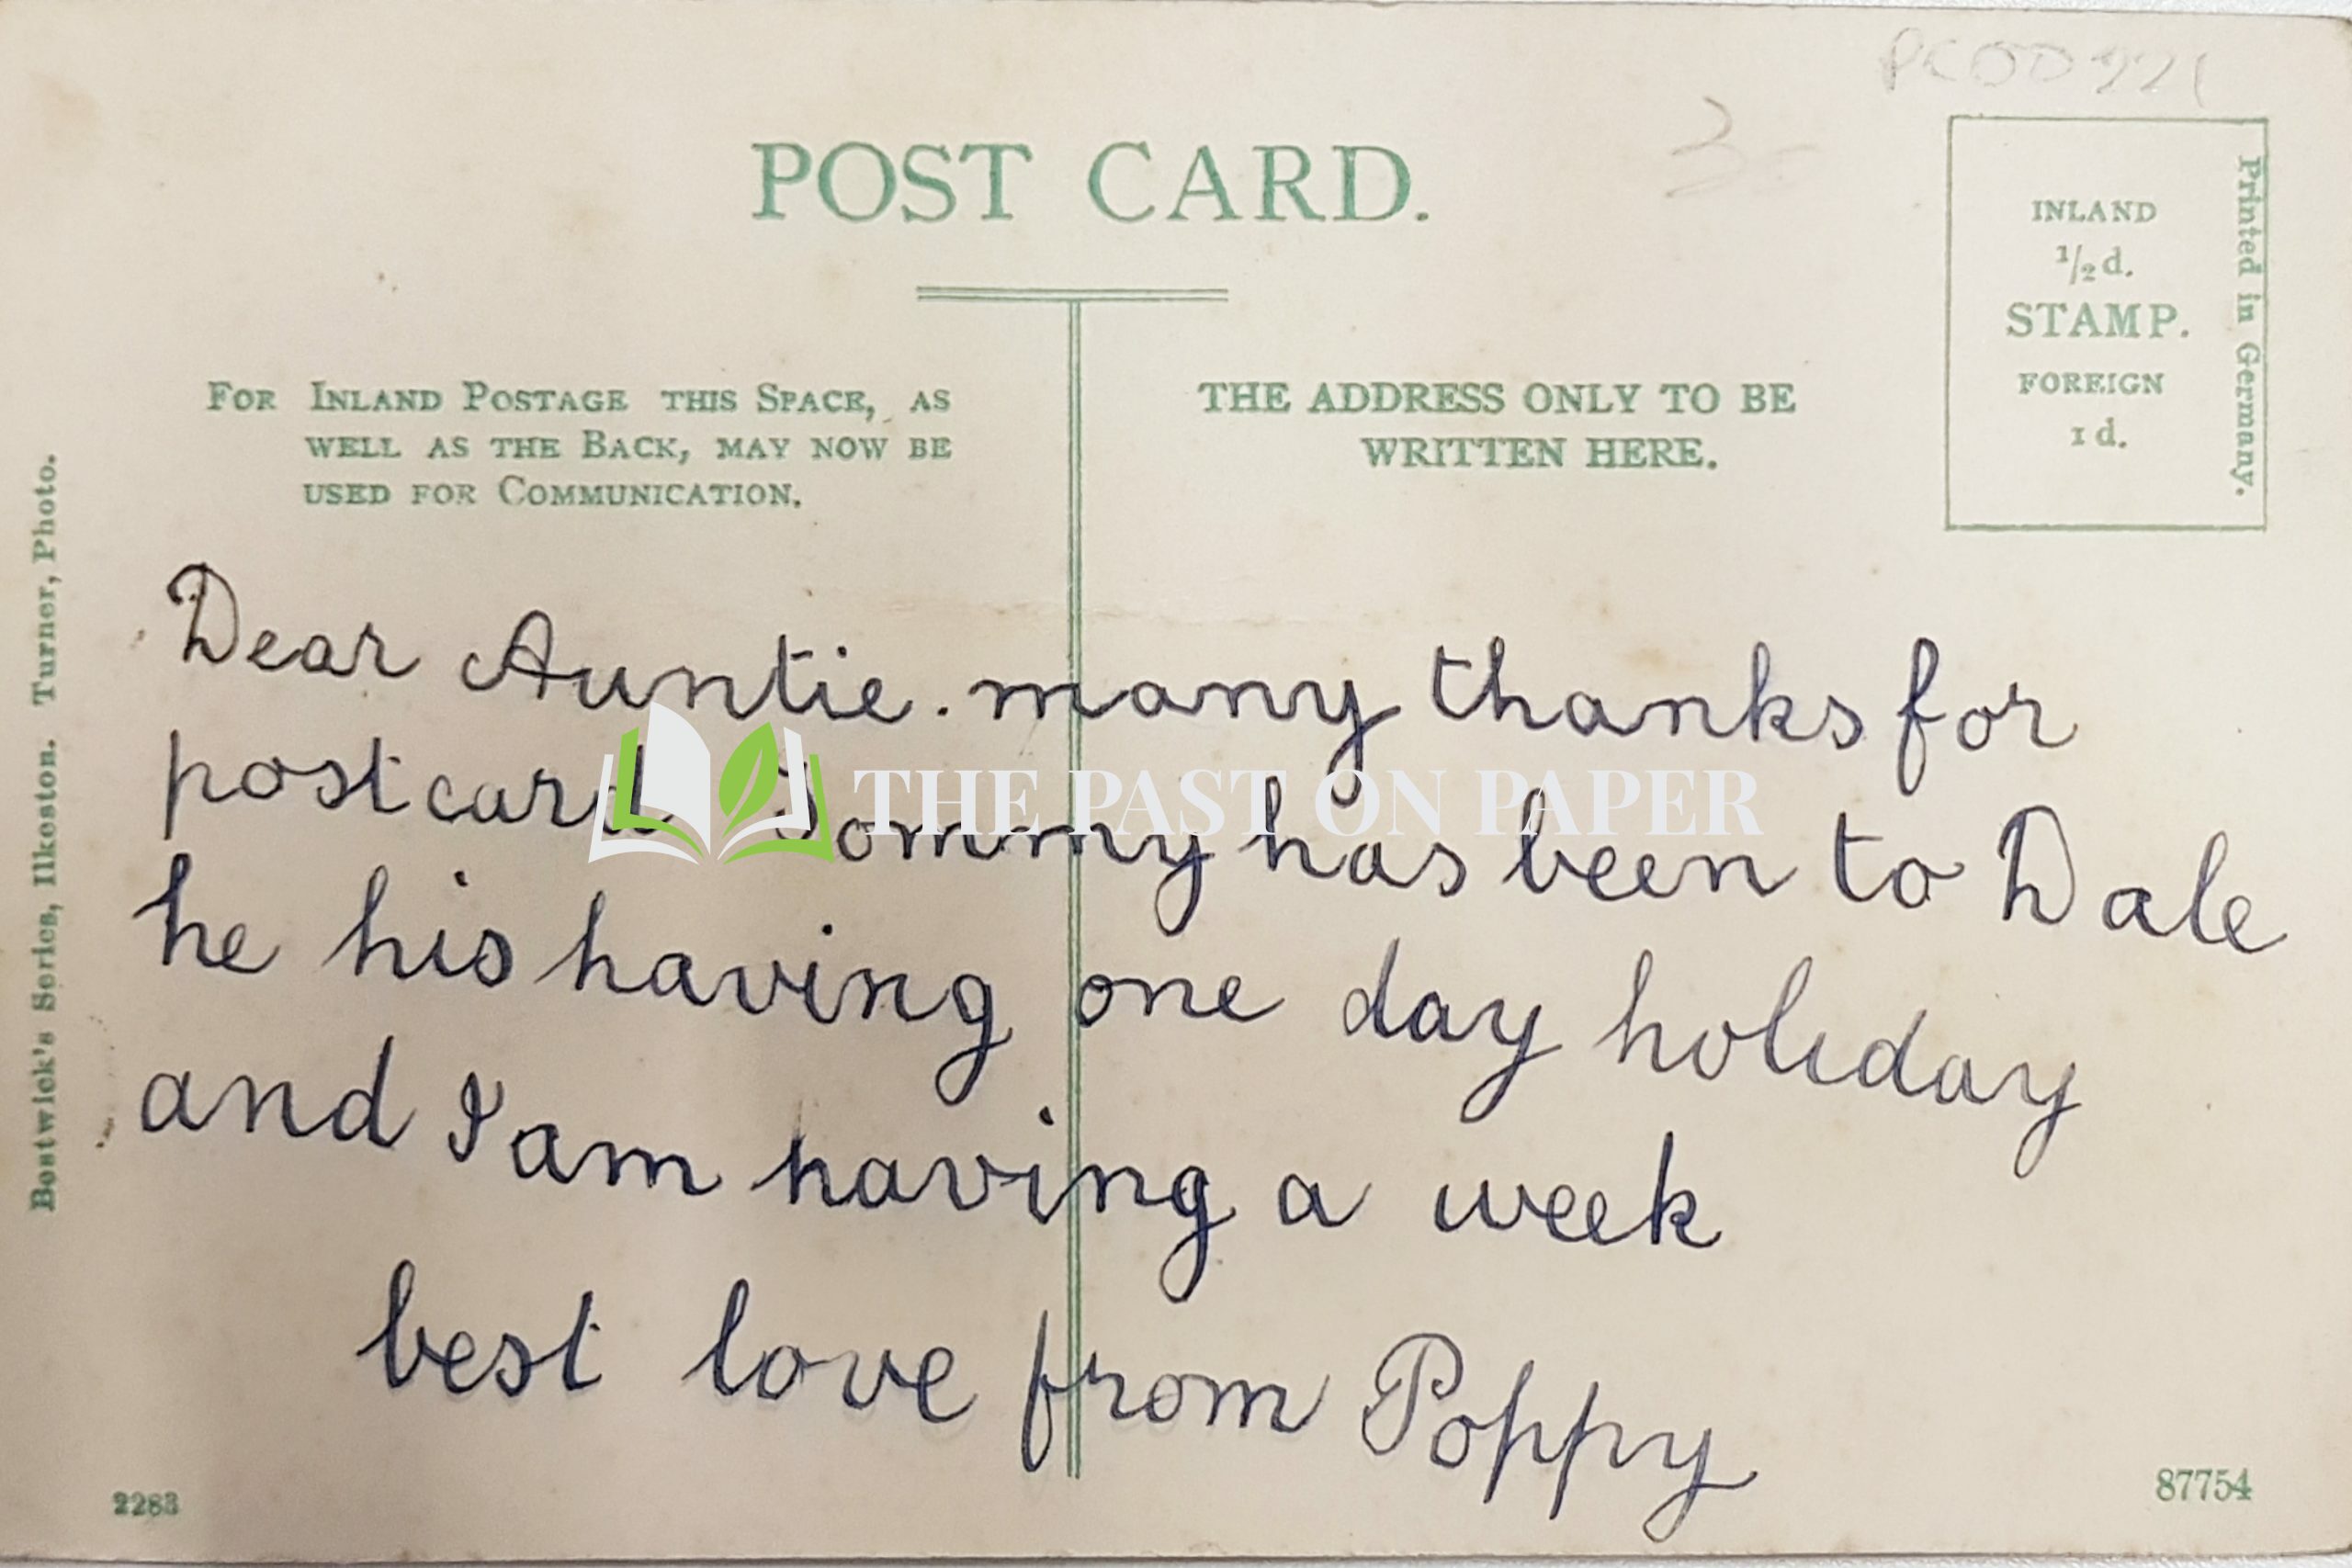 POST CARD.
INLAND
½d.
STAMP.
FOREIGN
1d.
Printed in Germany.
FOR INLAND POSTAGE THIS SPACE, AS
WELL AS THE BACK, MAY NOW BE
USED FOR COMMUNICATION.
THE ADDRESS ONLY TO BE
WRITTEN HERE.
Bostwick's Series, Ilkeston. Turner, Photo.
Dear Auntie. many thanks for
postcard Tommy has been to Dale
he his having one day holiday
and I am having a week
best love from Poppy
THE PAST ON PAPER
2283
87754